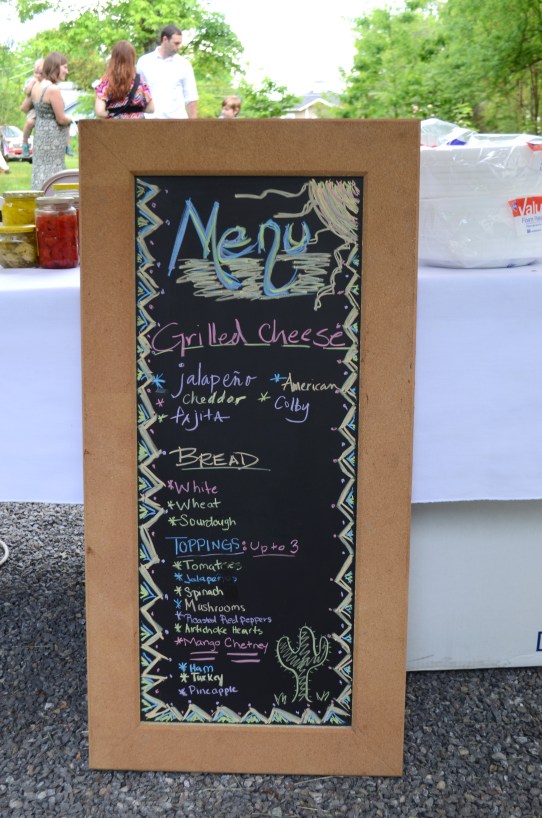 Menu
Grilled Cheese
* jalapeño * American
* Cheddar * Colby
* fajita
BREAD
* White
* Wheat
* Sourdough
TOPPINGS: Up to 3
* Tomatoes
* Jalapenos
* Spinach
* Mushrooms
* Roasted Red Peppers
* Artichoke Hearts
* Mango Chetney
* Ham
* Turkey
* Pineapple
Valu